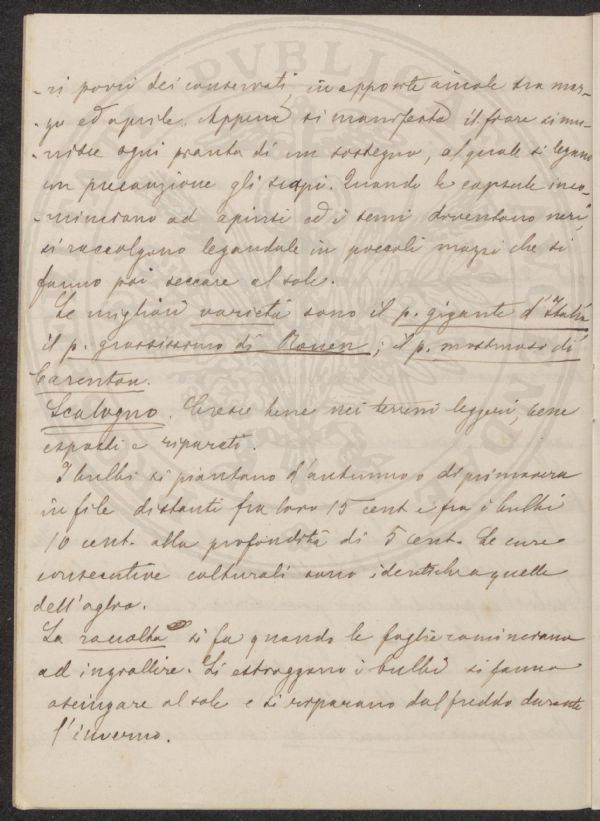 -ri porri dei conservati, in apposite aiuole tra mar-
-zo ed aprile. Appena si manifesta il fiore si mu-
-nisce ogni pianta di un sostegno, al quale si legano
con precauzione gli scapi. Quando le capsule inco-
-minciano ad aprirsi ed i semi diventano neri,
si raccolgono legandole in piccoli mazzi che si
fanno poi seccare al sole.
Le migliori varietà sono il p. gigante d'Italia
il p. grossissimo di Rouen; il p. mostruoso di
Carentan.
Scalogno. Cresce bene nei terreni leggeri, bene
esposti e riparati.
I bulbi si piantano d'autunno o di primavera
in file distanti fra loro 15 cent e fra i bulbi
10 cent. alla profondità di 5 cent. Le cure
consecutive colturali sono identiche a quelle
dell'aglio.
La raccolta si fa quando le foglie cominciano
ad ingiallire. Si estraggono i bulbi si fanno
asciugare al sole e si riparano dal freddo durante
l'inverno.
PVBLICA